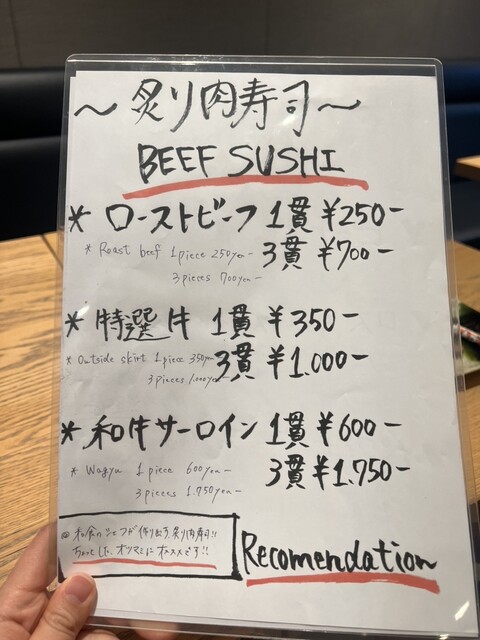 ～炙り肉寿司～
BEEF SUSHI
* ローストビーフ 1貫 ¥250-
* Roast beef 1piece 250yen-
3貫 ¥700-
3pieces 700yen-
* 特選牛 1貫 ¥350-
* Outside skirt 1piece 350yen
3貫 ¥1.000-
3pieces 1.000yen-
* 和牛サーロイン 1貫 ¥600-
* Wagyu 1piece 600yen-
3貫 ¥1.750-
3pieces 1.750yen-
和食のシェフが作り出す、炙り肉寿司!!
ちょっとした、オツマミにオススメです!!
Recomendation